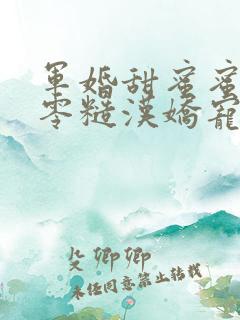 軍婚甜蜜蜜
零糙漢嬌寵
殳卿卿
未經同意禁止轉載